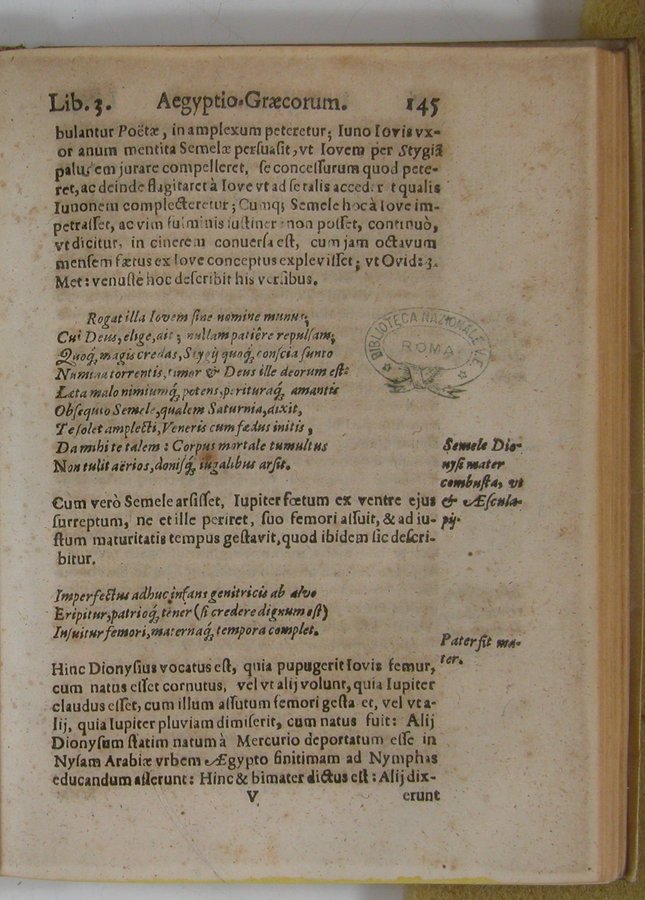 Lib. 3. Aegyptio-Græcorum. 145
bulantur Poëtæ, in amplexum peteretur; Iuno Iovis vx-
or anum mentita Semelæ persuasit, vt Iovem per Stygiã
paludem jurare compelleret, se concessurum quod pete-
ret, ac deinde flagitaret à Iove vt ad se talis accederet qualis
Iunonem complecteretur; Cumq; Semele hoc à Iove im-
petrasset, ac vim fulminis sustinere non posset, continuò,
vt dicitur, in cinerem conversa est, cum jam octavum
mensem fœtus ex Iove conceptus explevisset; vt Ovid: 3.
Met: venustè hoc describit his versibus.
Rogat illa Iovem sine nomine munus,
Cui Deus, elige, ait; nullam patiêre repulsam;
Quoq́, magis credas, Stygij quoq́, conscia sunto
Numina torrentis, timor & Deus ille deorum est:
Læta malo nimiumq́, potens, perituraq́, amantis
Obsequio Semele, qualem Saturnia, dixit,
Te solet amplecti, Veneris cum fœdus initis,
Da mihi te talem: Corpus mortale tumultus
Non tulit aërios, donisq́, iugalibus arsit.
Semele Dio-
nysi mater
combusta, vt
& Æscula-
pij.
Cum verò Semele arsisset, Iupiter fœtum ex ventre ejus
surreptum, ne et ille periret, suo femori assuit, & ad iu-
stum maturitatis tempus gestavit, quod ibidem sic descri-
bitur.
Imperfectus adhuc infans genitricis ab alvo
Eripitur, patrioq́, tener (si credere dignum est)
Insuitur femori, maternaq́, tempora complet.
Pater fit ma-
ter.
Hinc Dionysius vocatus est, quia pupugerit Iovis femur,
cum natus esset cornutus, vel vt alij volunt, quia Iupiter
claudus esset, cum illum assutum femori gestaret, vel vt a-
lij, quia Iupiter pluviam dimiserit, cum natus fuit: Alij
Dionysum statim natum à Mercurio deportatum esse in
Nysam Arabiæ vrbem Ægypto finitimam ad Nymphas
educandum asserunt: Hinc & bimater dictus est: Alij dix-
V erunt
BIBLIOTECA NAZIONALE V.E.
ROMA